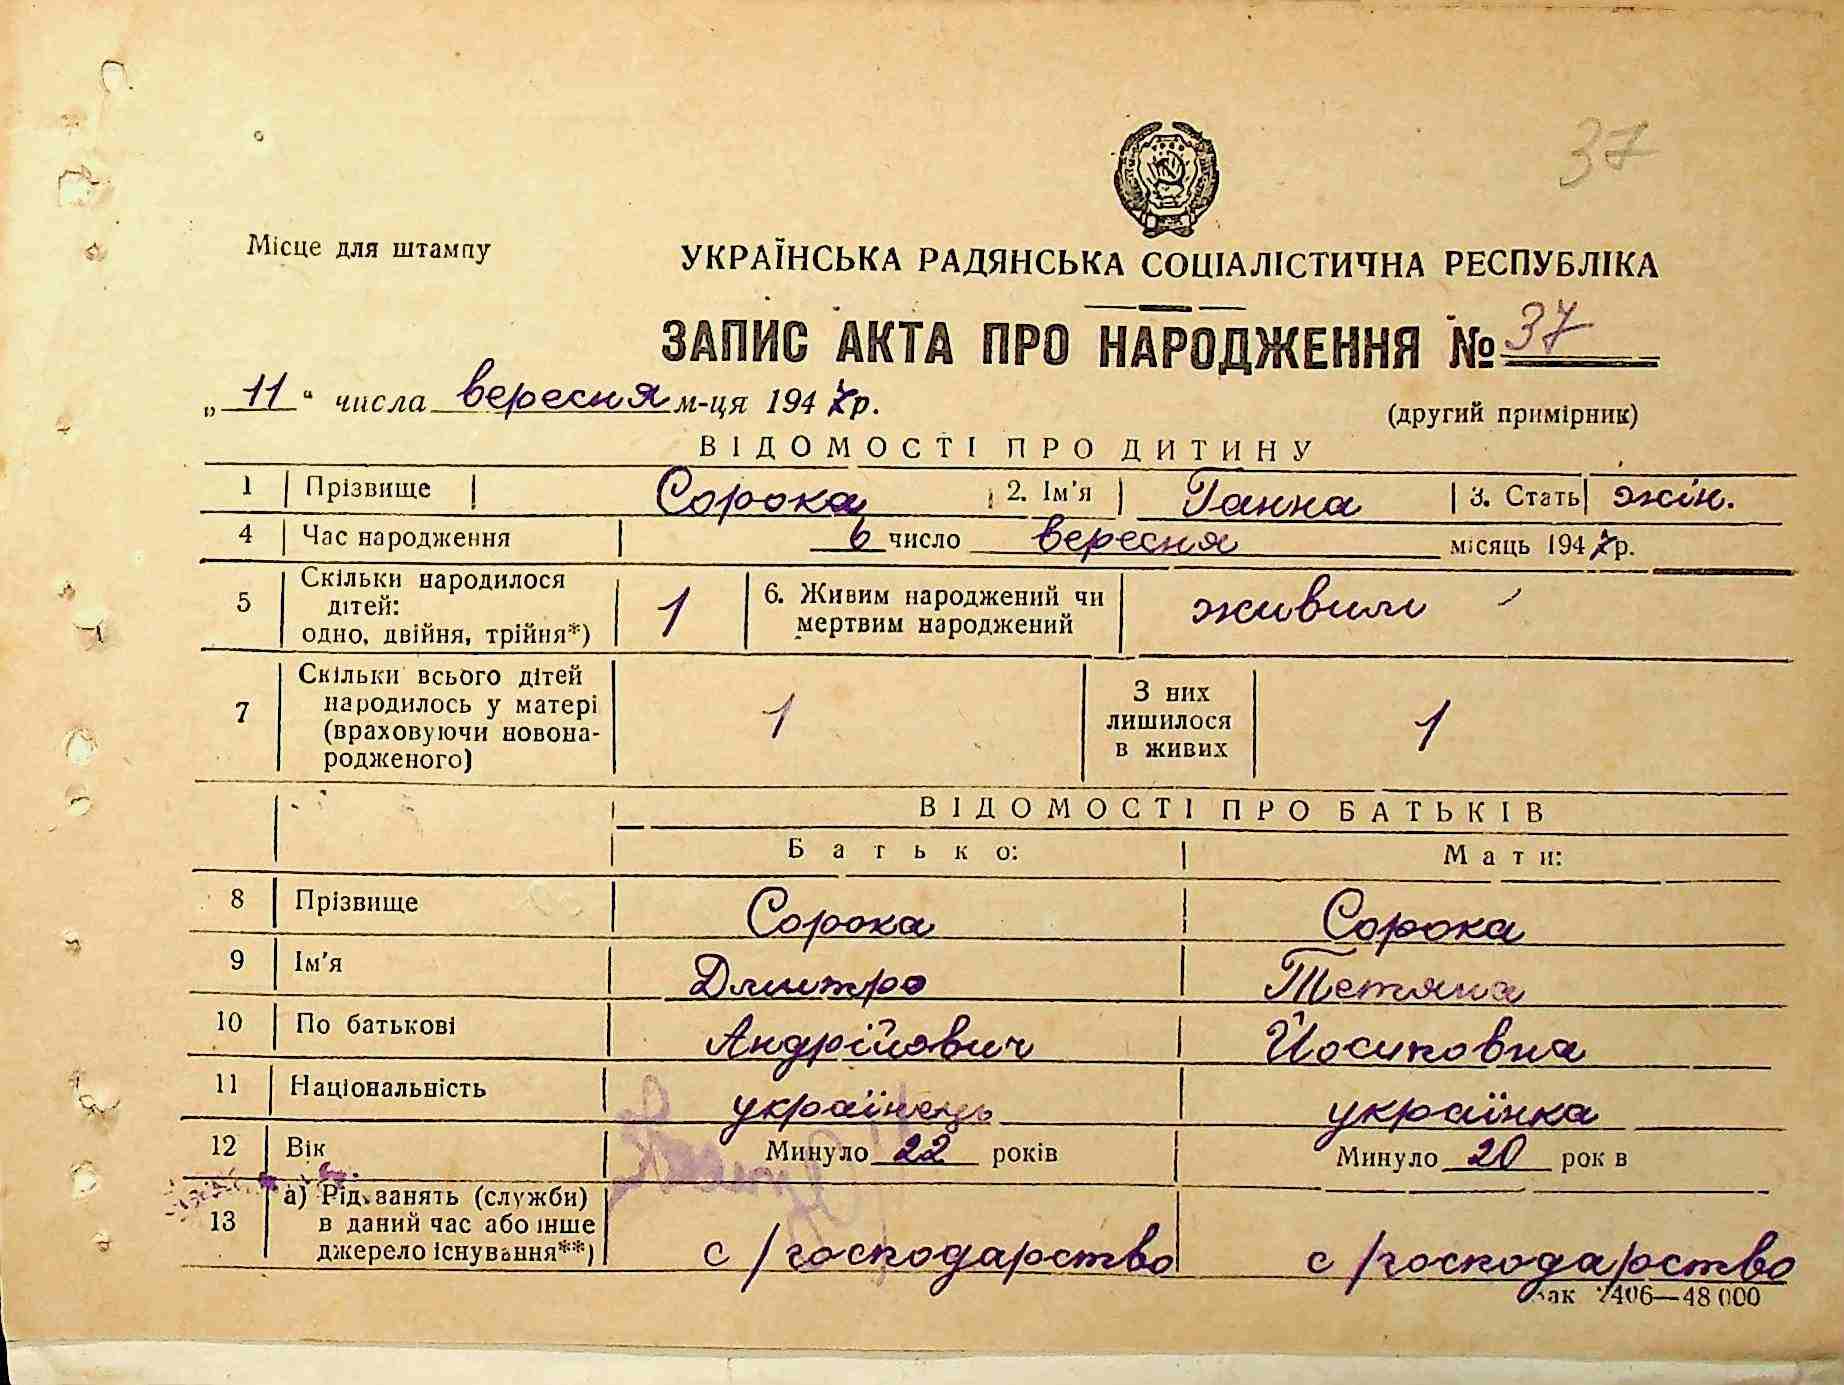 37
Місце для штампу
УКРАЇНСЬКА РАДЯНСЬКА СОЦІАЛІСТИЧНА РЕСПУБЛІКА
ЗАПИС АКТА ПРО НАРОДЖЕННЯ № 37
„ 11 “ числа вересня м-ця 1947 р.
(другий примірник)
ВІДОМОСТІ ПРО ДИТИНУ
1 Прізвище Сорока 2. Ім'я Ганна 3. Стать жін.
4 Час народження 6 число вересня місяць 1947 р.
5 Скільки народилося дітей: одно, двійня, трійня*) 1 6. Живим народжений чи мертвим народжений живим
7 Скільки всього дітей народилось у матері (враховуючи новонародженого) 1 З них лишилося в живих 1
ВІДОМОСТІ ПРО БАТЬКІВ
Батько: Мати:
8 Прізвище Сорока Сорока
9 Ім'я Дмитро Тетяна
10 По батькові Андрійович Йосиповна
11 Національність українець українка
12 Вік Минуло 22 років Минуло 20 рок в
13 а) Рід занять (служби) в даний час або інше джерело існування**) с/господарство с/господарство
Зак 2406—48 000